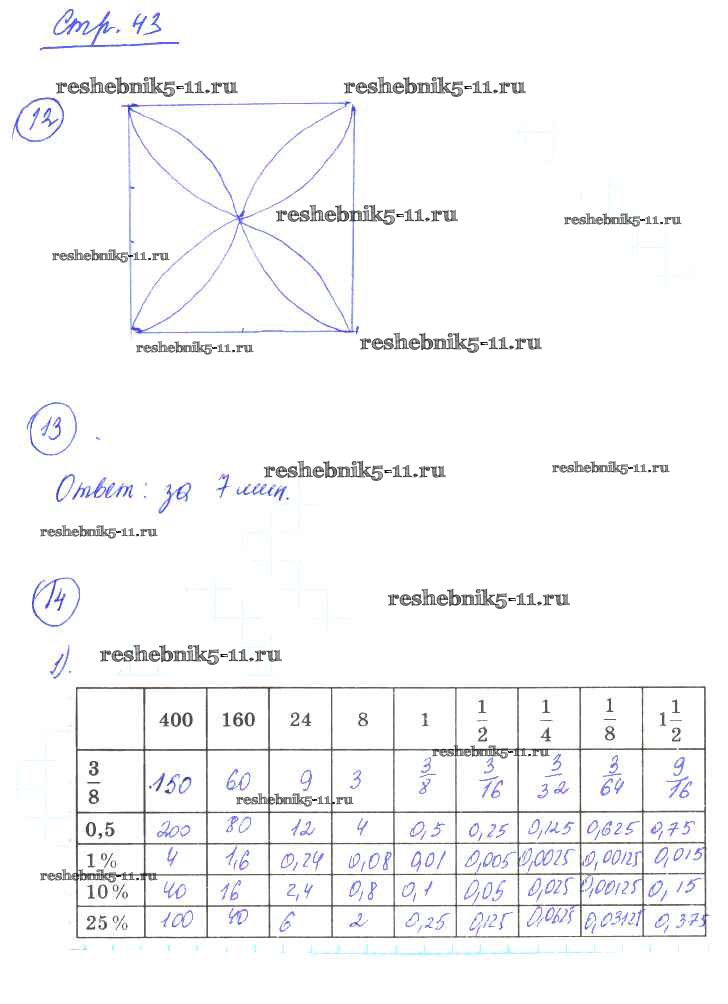 Стр. 43
reshebnik5-11.ru reshebnik5-11.ru
12
reshebnik5-11.ru
reshebnik5-11.ru
reshebnik5-11.ru
reshebnik5-11.ru
reshebnik5-11.ru
13
reshebnik5-11.ru reshebnik5-11.ru
Ответ: за 7 мин.
reshebnik5-11.ru
14
reshebnik5-11.ru
1). reshebnik5-11.ru
400 160 24 8 1 1/2 1/4 1/8 1 1/2
reshebnik5-11.ru
3/8 150 60 9 3 3/8 3/16 3/32 3/64 9/16
reshebnik5-11.ru
0,5 200 80 12 4 0,5 0,25 0,125 0,625 0,75
1% 4 1,6 0,24 0,08 0,01 0,005 0,0025 0,00125 0,015
reshebnik5-11.ru
10% 40 16 2,4 0,8 0,1 0,05 0,025 0,00125 0,15
25% 100 40 6 2 0,25 0,125 0,0625 0,03125 0,375